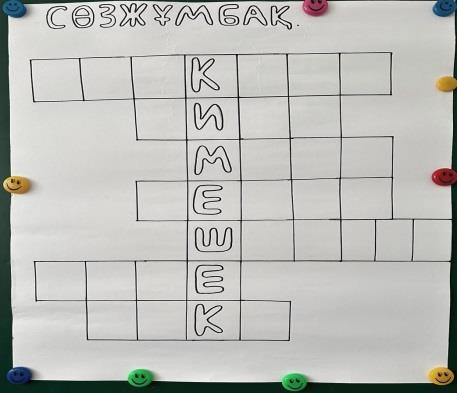 СӨЗЖҰМБАҚ.
К
И
М
Е
Ш
Е
К